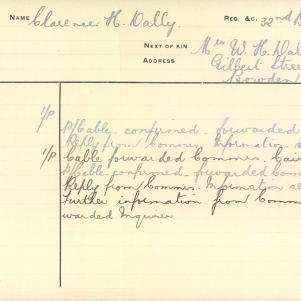 NAME Clarence H. Dally. REG. &C. 32nd B
NEXT OF KIN Mrs W. H. Dal
ADDRESS Gilbert Stree
Bowden
1/P P/Cable confirmed forwarded
Reply from Commrs. Information s
1/P Cable forwarded Commrs. Cair
P/Cable confirmed forwarded Com
Reply from Commrs. Information se
Further information from Comm
warded Inquirer